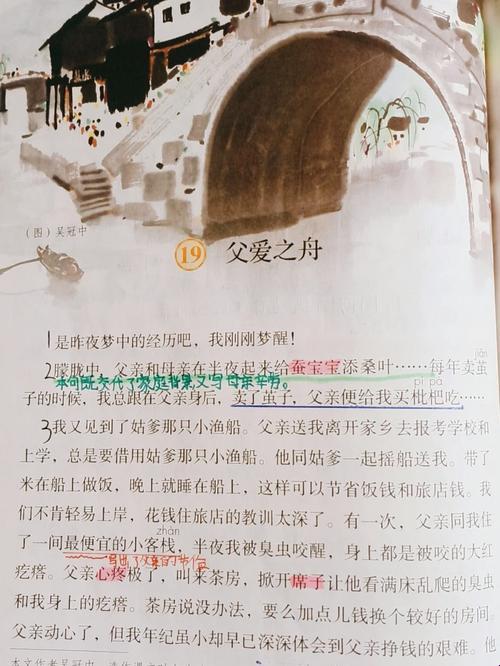 （图）吴冠中
19 父爱之舟
1是昨夜梦中的经历吧，我刚刚梦醒！
2朦胧中，父亲和母亲在半夜起来给蚕宝宝添桑叶……每年卖茧
jiǎn
本句既交代了家庭背景又写母亲辛劳。
pí pá
子的时候，我总跟在父亲身后，卖了茧子，父亲便给我买枇杷吃……
3我又见到了姑爹那只小渔船。父亲送我离开家乡去报考学校和
上学，总是要借用姑爹那只小渔船。他同姑爹一起摇船送我。带了
米在船上做饭，晚上就睡在船上，这样可以节省饭钱和旅店钱。我
们不肯轻易上岸，花钱住旅店的教训太深了。有一次，父亲同我住
zhàn
了一间最便宜的小客栈，半夜我被臭虫咬醒，身上都是被咬的大红
写出了父亲的节俭
疙瘩。父亲心疼极了，叫来茶房，掀开席子让他看满床乱爬的臭虫
和我身上的疙瘩。茶房说没办法，要么加点儿钱换个较好的房间。
父亲动心了，但我年纪虽小却早已深深体会到父亲挣钱的艰难。他